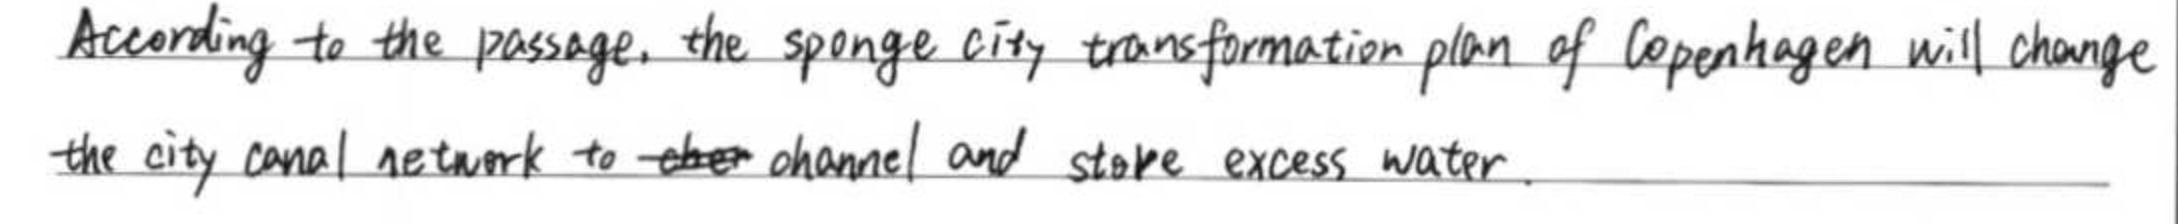 According to the passage, the sponge city transformation plan of Copenhagen will change
the city canal network to channel and store excess water.